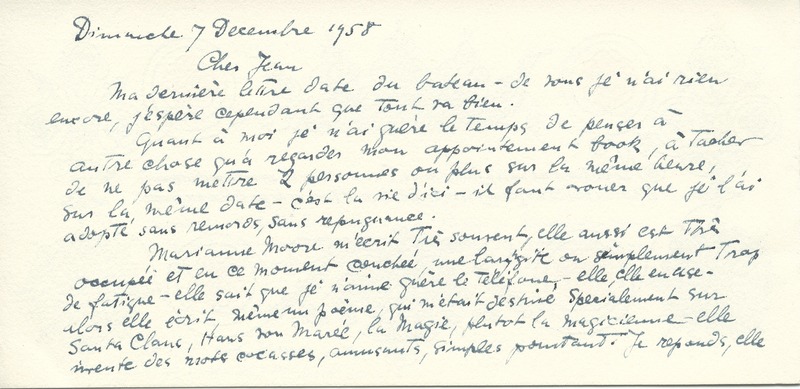 Dimanche 7 Decembre 1958
Cher Jean
Ma dernière lettre date du bateau – de vous je n'ai rien
encore, j'espère cependant que tout va bien.
Quant à moi je n'ai guère le temps de penser à
autre chose qu'à regarder mon appointement book, à tacher
de ne pas mettre 2 personnes ou plus sur la même heure,
sur la même date – c'est la vie d'ici – il faut avouer que je l'ai
adopté sans remords, sans repugnance.
Marianne Moore m'écrit très souvent, elle aussi est très
occupée et en ce moment couchée, une laryngite ou simplement trop
de fatigue – elle sait que je n'aime guère le téléfone, – elle, elle en use –
alors elle écrit même un poème, qui m'était destiné specialement sur
Santa Claus, Hans von Marée, la Magie, plutot la magicienne – elle
invente des mots cocasses, amusants, simples pourtant. Je reponds, elle